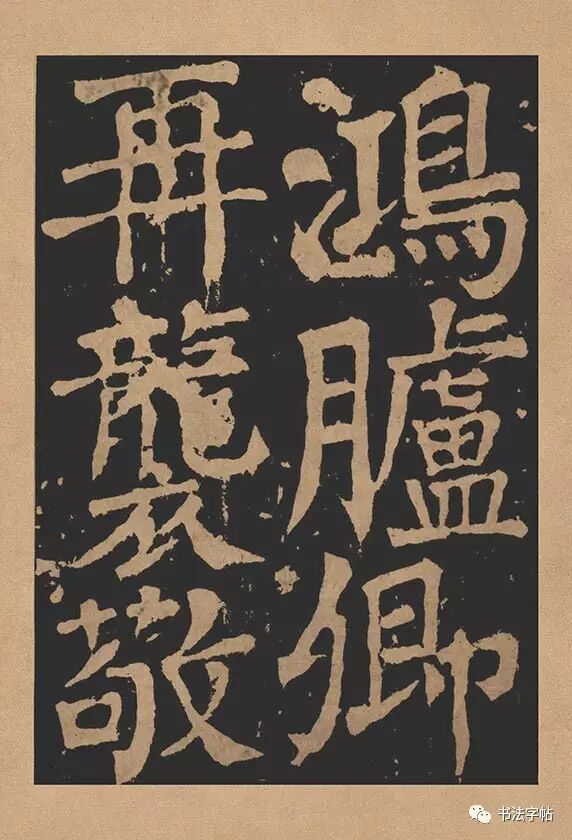 鴻臚卿
再襲敬
书法字帖